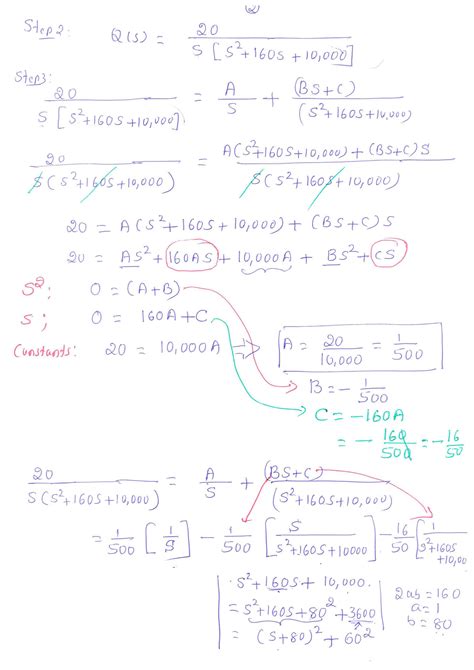 (2)
Step2: Q(s) = 20 / S[S²+160S+10,000]
Step3:
20 / S[S²+160S+10,000] = A/S + (BS+C) / (S²+160S+10,000)
20 / S(S²+160S+10,000) = A(S²+160S+10,000)+(BS+C)S / S(S²+160S+10,000)
20 = A(S²+160S+10,000) + (BS+C)S
20 = AS²+160AS+10,000A + BS²+CS
S²; 0 = (A+B)
S; 0 = 160A+C
Constants: 20 = 10,000A ⇒ A = 20/10,000 = 1/500
B = -1/500
C = -160A
= -160/500 = -16/50
20 / S(S²+160S+10,000) = A/S + (BS+C) / (S²+160S+10,000)
= 1/500 [1/S] - 1/500 [S / S²+160S+10000] - 16/50 [1 / S²+160S+10,000
S²+160S+10,000.
= S²+160S+80²+3600
= (S+80)²+60²
2ab=160
a=1
b=80